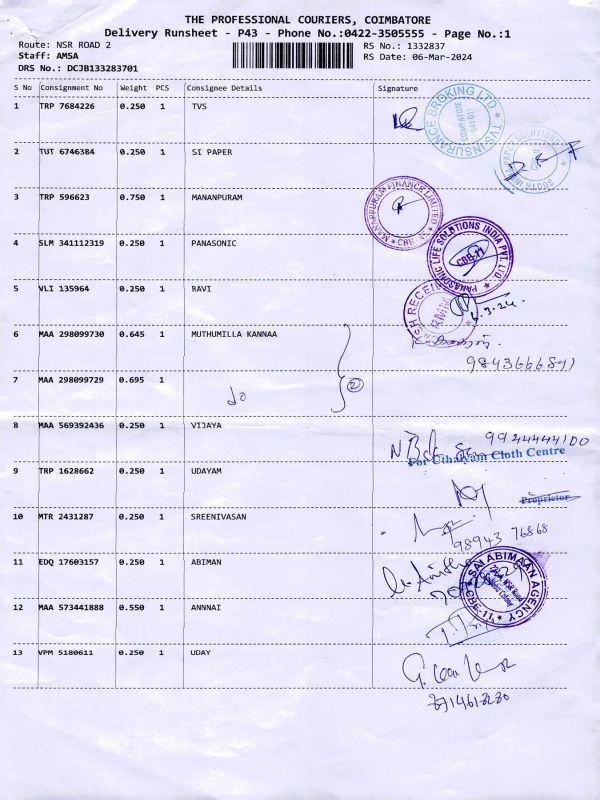 THE PROFESSIONAL COURIERS, COIMBATORE
Delivery Runsheet - P43 - Phone No.:0422-3505555 - Page No.:1
Route: NSR ROAD 2
RS No.: 1332837
Staff: AMSA
RS Date: 06-Mar-2024
DRS No.: DCJB133283701
S No Consignment No Weight PCS Consignee Details Signature
1 TRP 7684226 0.250 1 TVS
TVS INSURANCE BROKING LTD
COIMBATORE 641011
2 TUT 6746384 0.250 1 SI PAPER
3 TRP 596623 0.750 1 MANANPURAM
MANAPPURAM FINANCE LIMITED
4 SLM 341112319 0.250 1 PANASONIC
PANASONIC LIFE SOLUTIONS INDIA PVT. LTD.
CBE-11
5 VLI 135964 0.250 1 RAVI
6.3.24
6 MAA 298099730 0.645 1 MUTHUMILLA KANNAA
9843666841
7 MAA 298099729 0.695 1
do
2
8 MAA 569392436 0.250 1 VIJAYA
9944444100
For Uthaiyam Cloth Centre
9 TRP 1628662 0.250 1 UDAYAM
Proprietor
10 MTR 2431287 0.250 1 SREENIVASAN
98943 76868
11 EDQ 17603157 0.250 1 ABIMAN
SAI ABIMAAN AGENCY
CBE-11
12 MAA 573441888 0.550 1 ANNNAI
13 VPM 5180611 0.250 1 UDAY